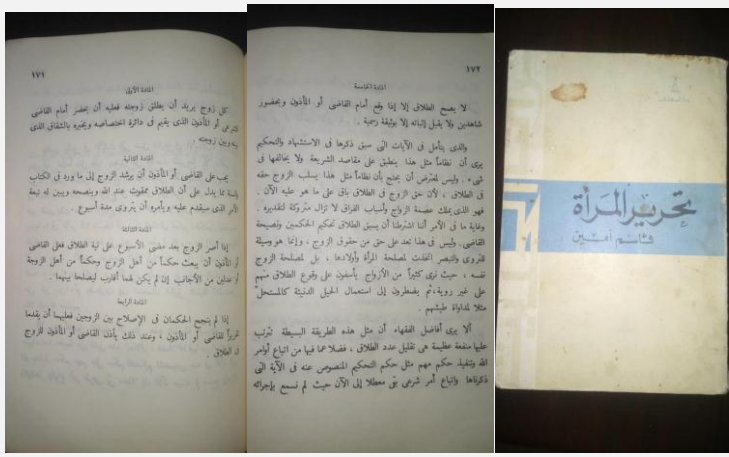 ١٧١
المادة الأولى
كل زوج يريد أن يطلق زوجته فعليه أن يحضر أمام القاضى
الشرعى أو المأذون الذى يقيم فى دائرة اختصاصه ويخبره بالشقاق الذى
بينه وبين زوجته
المادة الثانية
يجب على القاضى أو المأذون أن يرشد الزوج إلى ما ورد فى الكتاب
والسنة مما يدل على أن الطلاق ممقوت عند الله وينصحه ويبين له تبعة
الأمر الذى سيقدم عليه ويأمره أن يتروى مدة أسبوع .
المادة الثالثة
إذا أصر الزوج بعد مضى الأسبوع على نية الطلاق فعلى القاضى
أو المأذون أن يبعث حكماً من أهل الزوج وحكماً من أهل الزوجة
أو عدلين من الأجانب إن لم يكن لهما أقارب ليصلحا بينهما .
المادة الرابعة
إذا لم ينجح الحكمان فى الإصلاح بين الزوجين فعليهما أن يقدما
تقريراً للقاضى أو المأذون ، وعند ذلك يأذن القاضى أو المأذون للزوج
فى الطلاق .
١٧٢
المادة الخامسة
لا يصح الطلاق إلا إذا وقع أمام القاضى أو المأذون وبحضور
شاهدين ولا يقبل إثباته إلا بوثيقة رسمية .
والذى يتأمل فى الآيات التى سبق ذكرها فى الاستشهاد والتحكيم
يرى أن نظاماً مثل هذا ينطبق على مقاصد الشريعة ولا يخالفها فى
شىء . وليس لمعترض أن يحتج بأن نظاماً مثل هذا يسلب الزوج حقه
فى الطلاق ، لأن حق الزوج فى الطلاق باق على ما هو عليه الآن .
فهو الذى يملك عصمة الزواج وأسباب الفراق لا تزال متروكة لتقديره .
وغاية ما فى الأمر أننا اشترطنا أن يسبق الطلاق تحكيم الحكمين ونصيحة
القاضى. وليس فى هذا تعد على حق من حقوق الزوج ، وإنما هو وسيلة
للتروى والتبصر اتخذت لمصلحة المرأة وأولادها ، بل لمصلحة الزوج
نفسه ، حيث نرى كثيراً من الأزواج يأسفون على وقوع الطلاق منهم
على غير روية،ثم يضطرون إلى استعمال الحيل الدنيئة كالمستحل
مثلا لمداواة طيشهم .
ألا يرى أفاضل الفقهاء أن مثل هذه الطريقة البسيطة تترتب
عليها منفعة عظيمة هى تقليل عدد الطلاق ، فضلا عما فيها من اتباع أوامر
الله وتنفيذ حكم مهم مثل حكم التحكيم المنصوص عنه فى الآية التى
ذكرناها واتباع أمر شرعى بقى معطلا إلى الآن حيث لم نسمع بإجرائه
تحرير المرأة
قاسم أمين